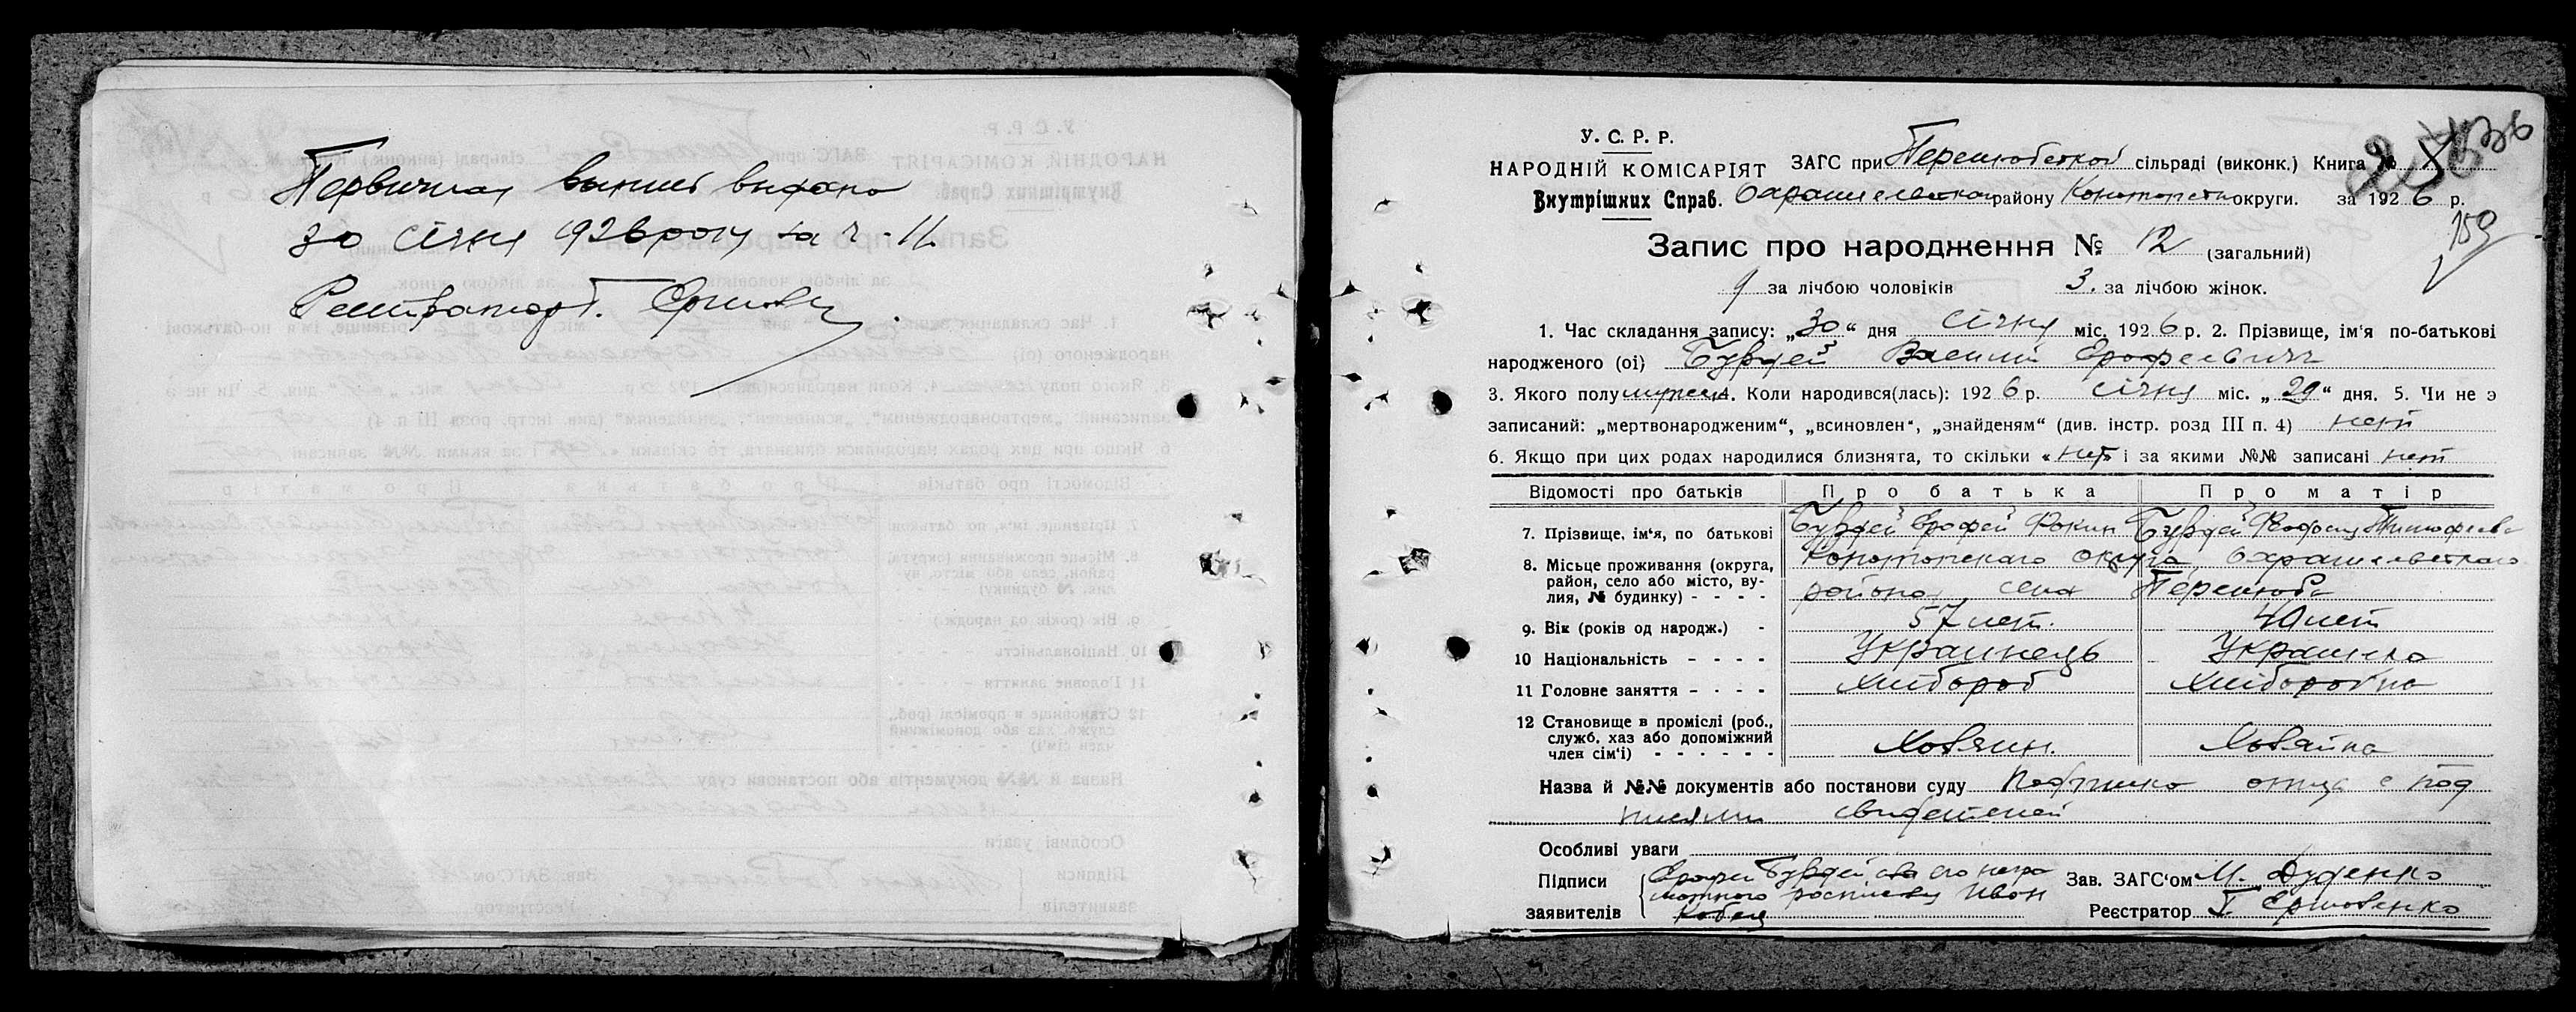 Первичная выпись выдана
30 січня 1926 року за ч. 11.
Реєстратор
У. С. Р. Р.
НАРОДНІЙ КОМІСАРІЯТ
Внутрішних Справ.
ЗАГС при сільраді (виконк.) Книга №
району Конотопськ округи. за 1926 р.
159
Запис про народження № 12 (загальний)
9 за лічбою чоловіків 3. за лічбою жінок.
1. Час складання запису: „30“ дня січня міс. 1926 р. 2. Прізвище, ім‘я по-батькові
народженого (ої) Бурдей Василий Ерофеевич
3. Якого полу мужск. 4. Коли народився(лась): 1926 р. січня міс. „29“ дня. 5. Чи не э
записаний: „мертвонародженим“, „всиновлен“, „знайденям“ (див. інстр. розд III п. 4) нет
6. Якщо при цих родах народилися близнята, то скільки «нет» і за якими №№ записані нет
Відомості про батьків Про батька Про матір
7. Прізвище, ім‘я, по батькові Бурдей Ерофей Фокин Бурдей Тимофеева
8. Місьце проживання (округа, район, село або місто, вулия, № будинку) - - - - Конотопскаго округа,
района, села
9. Вік (років од народж.) - 57 лет. 40 лет
10 Національність - - - - Украинець Украинка
11 Головне заняття - - - - Хлібороб Хліборобка
12 Становище в проміслі (роб., служб. хаз або допоміжний член сім‘ї) - - - - - - Хозяин. Хозяйка
Назва й №№ документів або постанови суду отца с под
писями свидетелей
Особливі уваги
Підписи заявителів Ерофей Бурдей его негра
мотного Иван
Зав. ЗАГС‘ом М. Дуденко
Реєстратор